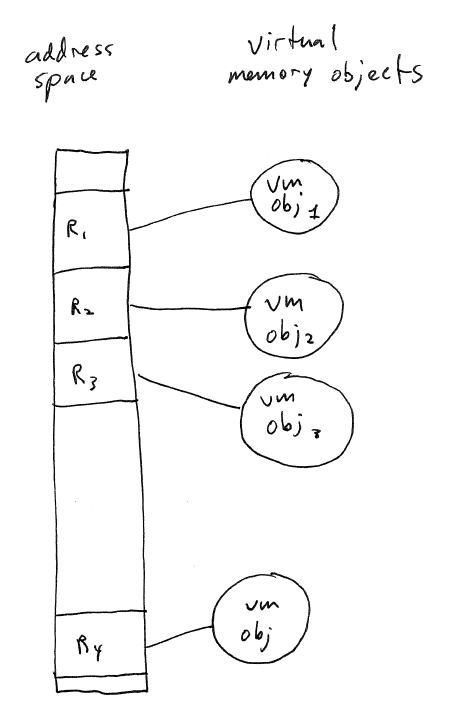 address
space
virtual
memory objects
R1
vm
obj 1
R2
vm
obj2
R3
vm
obj 3
R4
vm
obj